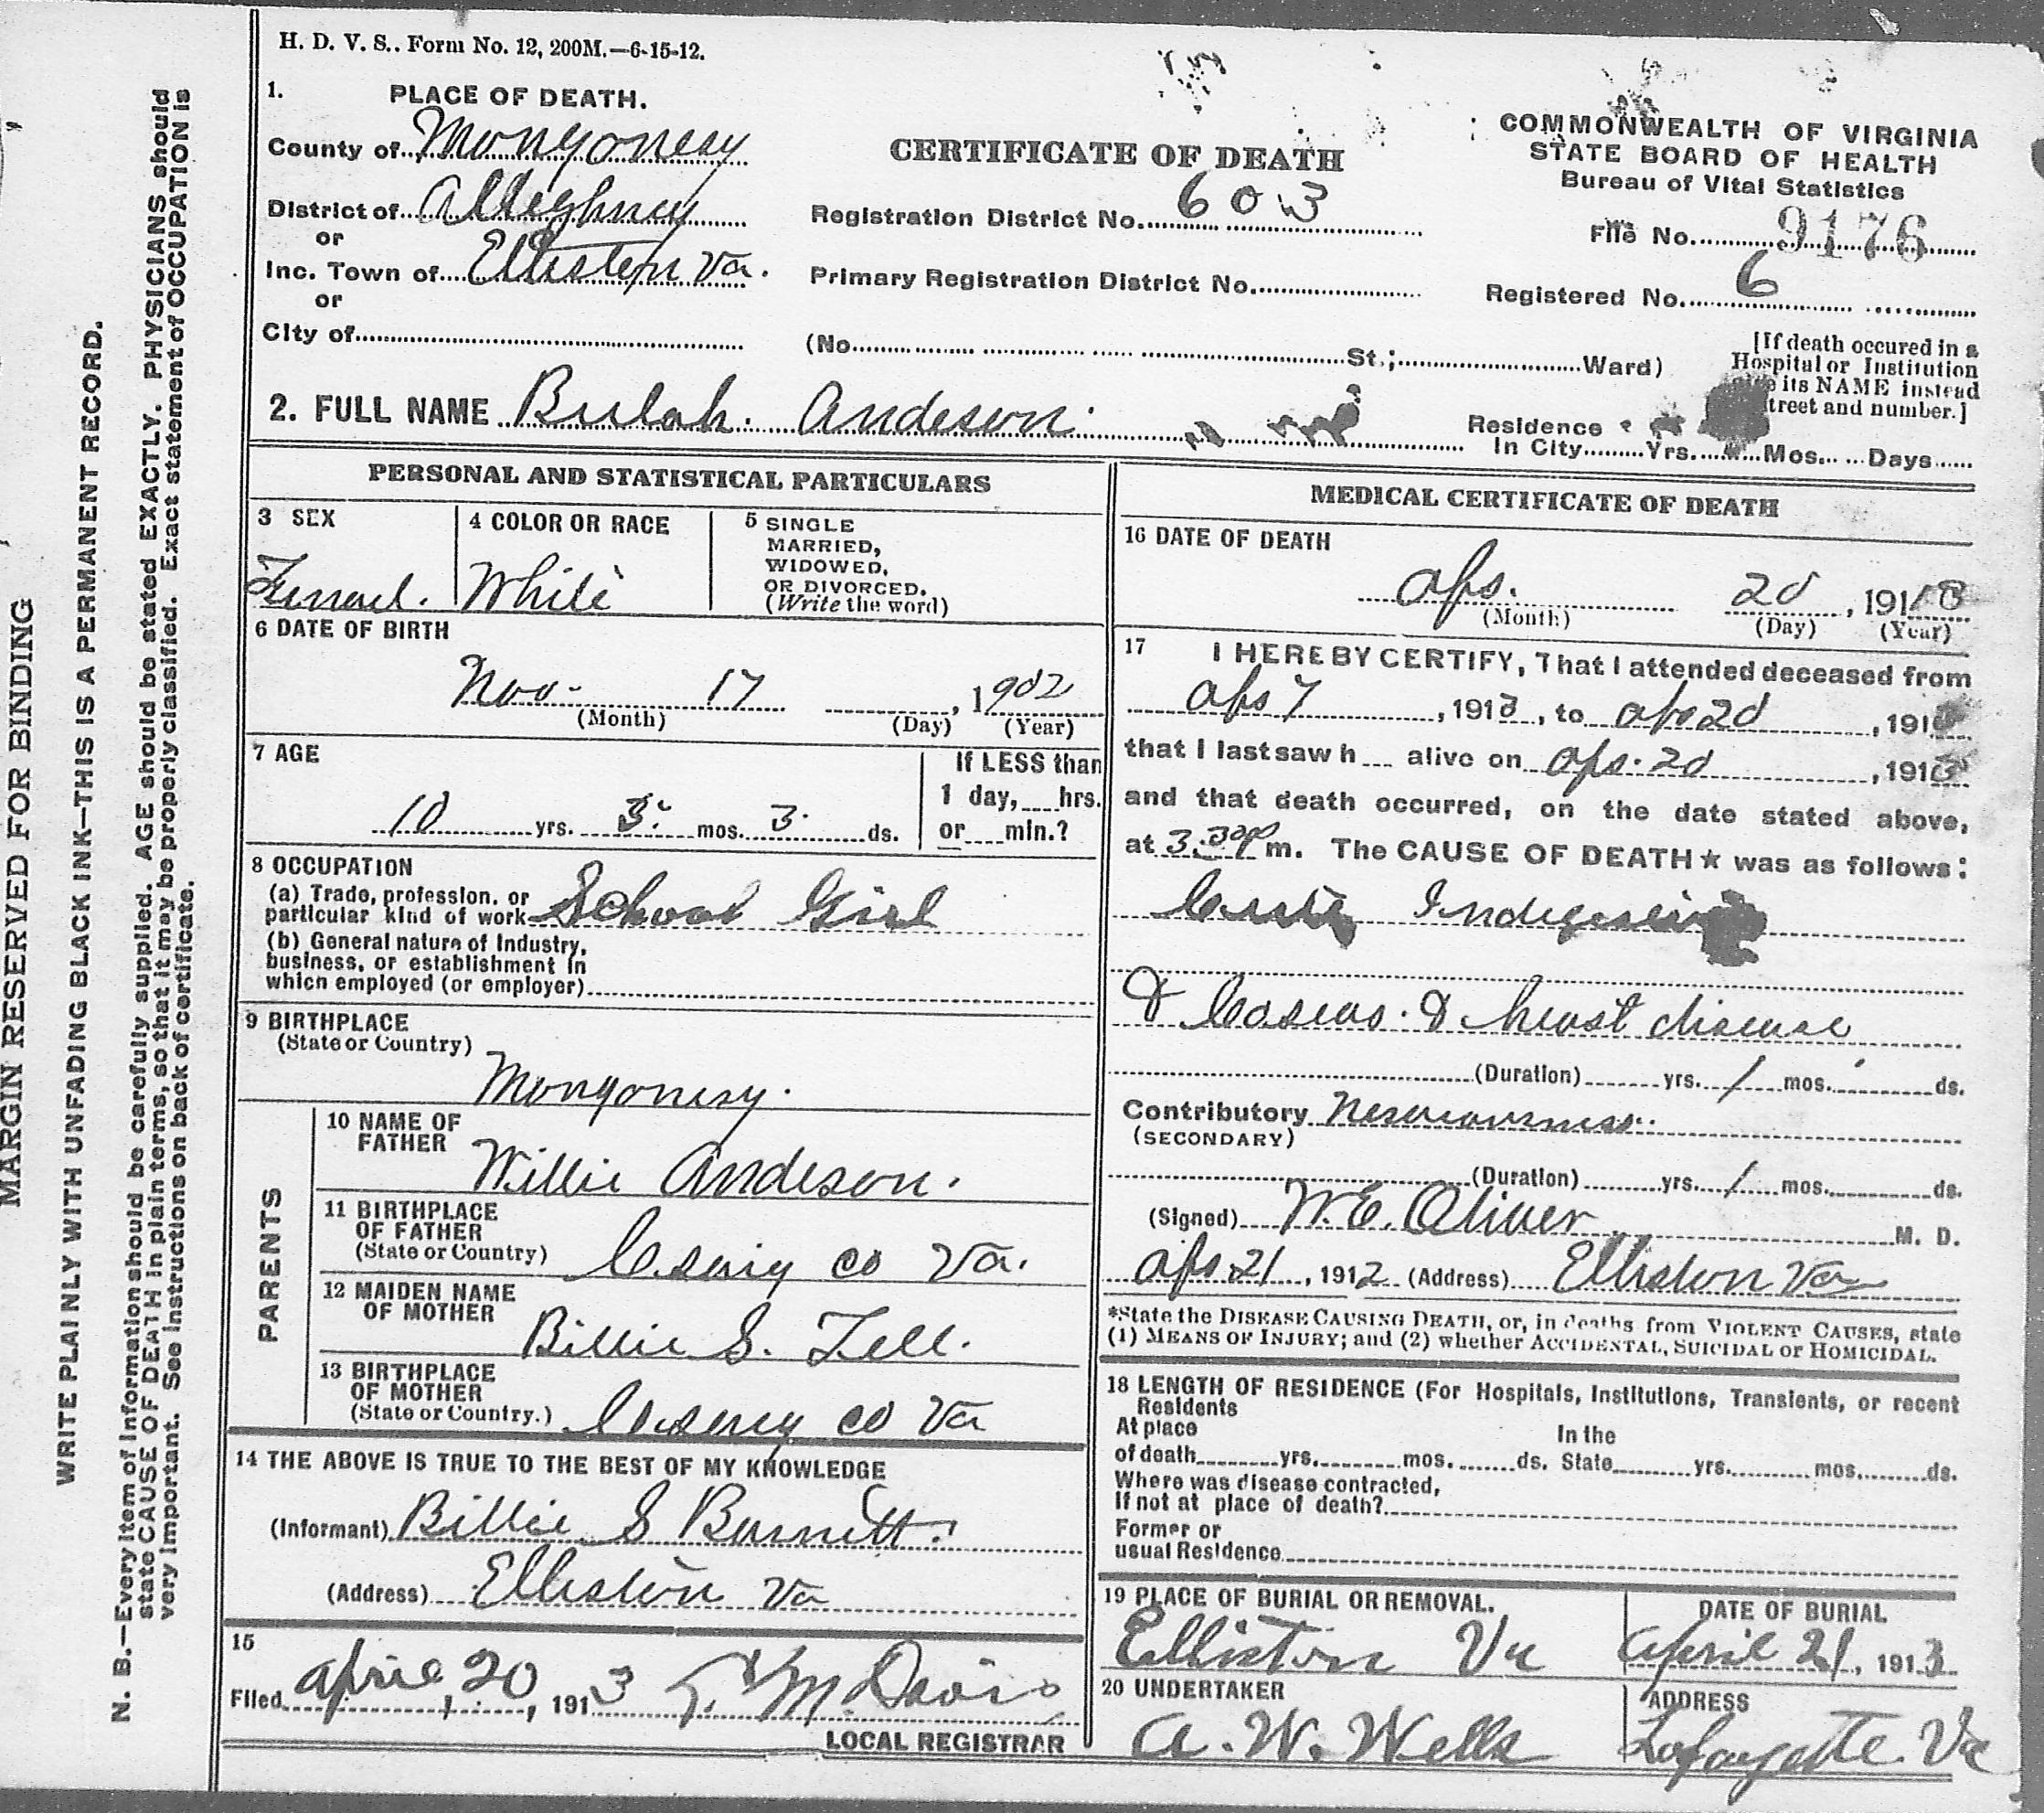 H. D. V. S.. Form No. 12, 200M.—6-15-12.
1. PLACE OF DEATH.
County of Mongonery
District of Alleghney
or
Inc. Town of Elliston Va.
or
City of
CERTIFICATE OF DEATH
Registration District No. 603
Primary Registration District No.
(No. St.; Ward)
COMMONWEALTH OF VIRGINIA
STATE BOARD OF HEALTH
Bureau of Vital Statistics
File No. 9176
Registered No. 6
[If death occured in a
Hospital or Institution
its NAME instead
treet and number.]
2. FULL NAME Bulah. Andeson.
Residence
In City Yrs. Mos. Days
PERSONAL AND STATISTICAL PARTICULARS
3 SEX
Femael.
4 COLOR OR RACE
White
5 SINGLE
MARRIED,
WIDOWED,
OR DIVORCED.
(Write the word)
6 DATE OF BIRTH
Nov. 17, 1902
(Month) (Day) (Year)
7 AGE
10 yrs. 5 mos 3 ds.
If LESS than
1 day, hrs.
or min.?
8 OCCUPATION
(a) Trade, profession. or
particular kind of work School Girl
(b) General nature of Industry,
business, or establishment in
which employed (or employer)
9 BIRTHPLACE
(State or Country)
Mongonery.
PARENTS
10 NAME OF
FATHER
Willie Andeson.
11 BIRTHPLACE
OF FATHER
(State or Country) co Va.
12 MAIDEN NAME
OF MOTHER
Billie S. Zell.
13 BIRTHPLACE
OF MOTHER
(State or Country.) co Va
14 THE ABOVE IS TRUE TO THE BEST OF MY KNOWLEDGE
(Informant) Billie S Burnett.
(Address) Elliston Va
15
Filed April 20, 1913 M. Davis
LOCAL REGISTRAR
MEDICAL CERTIFICATE OF DEATH
16 DATE OF DEATH
Apr. 20, 191
(Month) (Day) (Year)
17 I HEREBY CERTIFY, That I attended deceased from
Apr 7, 1913, to Apr 20, 191
that I last saw h alive on Apr. 20, 1913
and that death occurred, on the date stated above,
at 3.30 P m. The CAUSE OF DEATH* was as follows:
Indigestion
& & heart disease
(Duration) yrs. 1 mos. ds.
Contributory Nervousness.
(SECONDARY)
(Duration) yrs. 1 mos. ds.
(Signed) W. E. Oliver M. D.
Apr 21, 1912 (Address) Elliston Va
*State the DISEASE CAUSING DEATH, or, in deaths from VIOLENT CAUSES, state
(1) MEANS OF INJURY; and (2) whether ACCIDENTAL, SUICIDAL or HOMICIDAL.
18 LENGTH OF RESIDENCE (For Hospitals, Institutions, Transients, or recent
Residents
At place
of death yrs. mos. ds.
In the
State yrs. mos. ds.
Where was disease contracted,
If not at place of death?
Former or
usual Residence
19 PLACE OF BURIAL OR REMOVAL.
Elliston Va
DATE OF BURIAL
April 21, 1913
20 UNDERTAKER
A. W. Wells
ADDRESS
Lafayette Va
MARGIN RESERVED FOR BINDING
WRITE PLAINLY WITH UNFADING BLACK INK—THIS IS A PERMANENT RECORD.
N. B.—Every item of Information should be carefully supplied. AGE should be stated EXACTLY. PHYSICIANS should
state CAUSE OF DEATH in plain terms, so that it may be properly classified. Exact statement of OCCUPATION is
very important. See instructions on back of certificate.